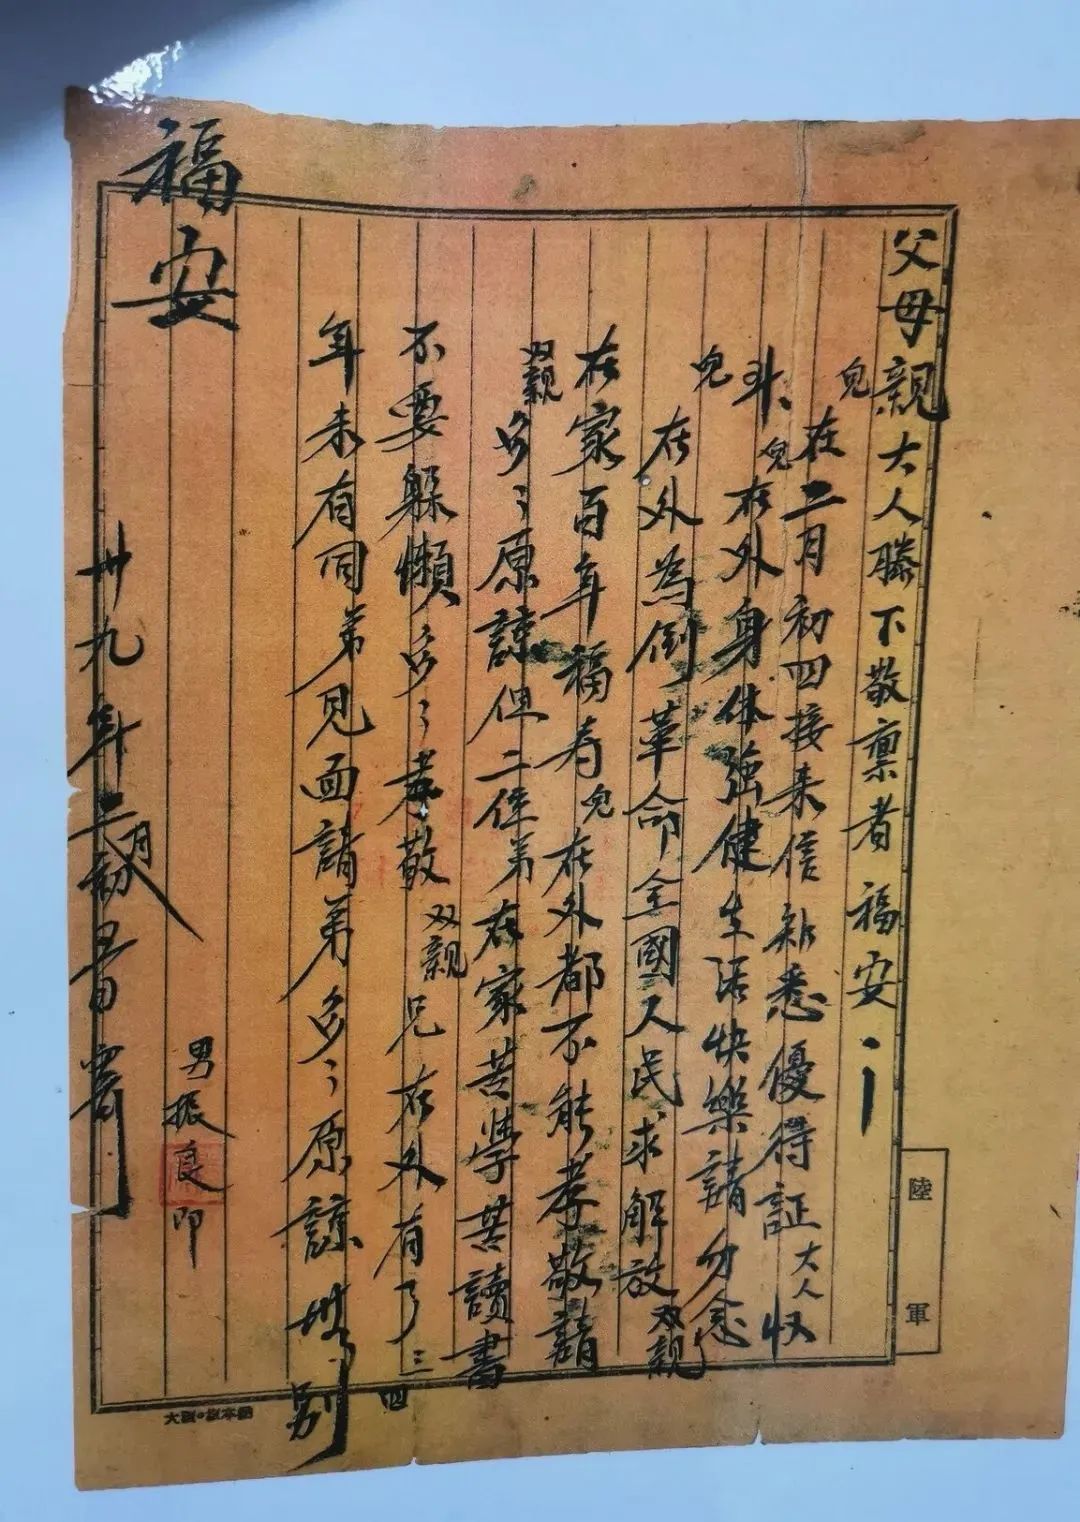 父母親大人膝下敬禀者 福安
兒在二月初四接来信知悉優得証大人收
斗、兒在外身体強健生活快樂請勿念
兒在外為倒革命全國人民求解放双親
在家百年福寿兒在外都不能孝敬請
双親多々原諒但二位弟在家苦學苦讀書
不要躲懒多々孝敬双親兄在外有了三四
年未有同弟見面請弟多々原諒 别
福安
男振良印
卅九年二月初五日
陸軍